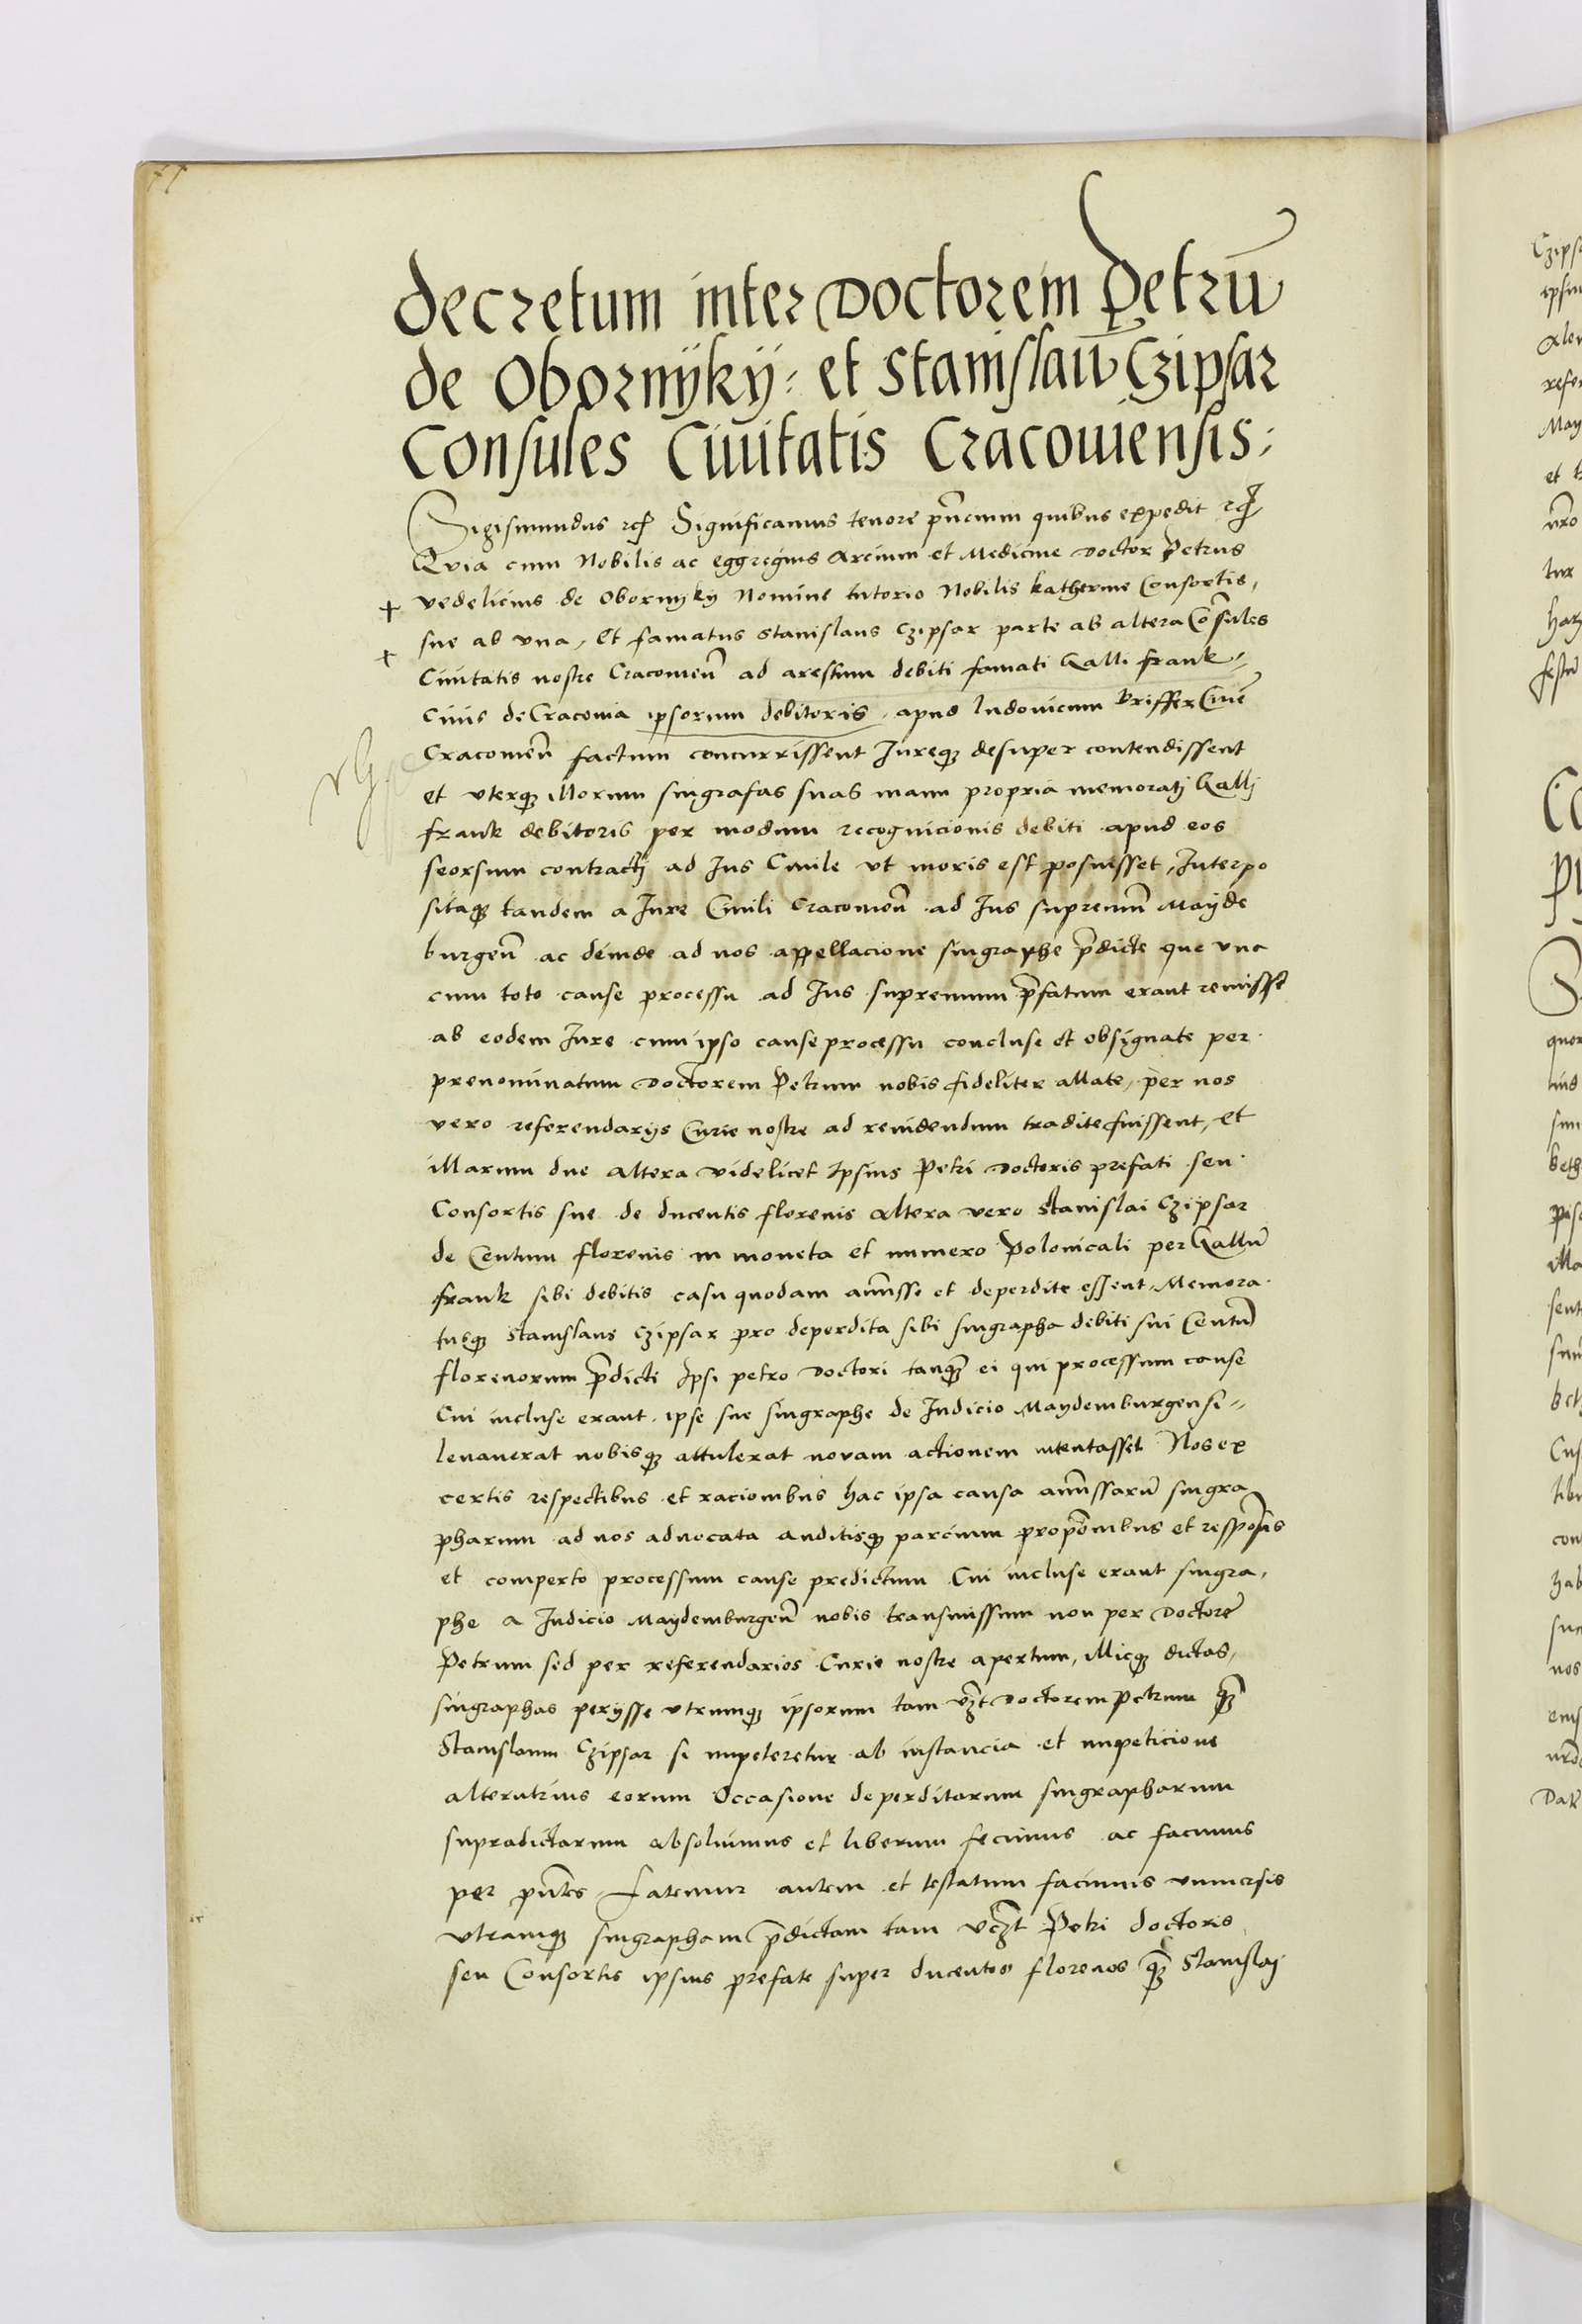 decretum inter Doctorem Petrū
de Obornÿkÿ: et Stanislaū Czipsar
Consules Ciuitatis Cracouiensis:
Sigismundus rcꝭ Significamus tenore pñcium quibus expedit rcꝭ
Quia cum Nobilis ac eggregius Arcium et Medicine Doctor Petrus
vedelicius de Obornyky Nomine tutorio Nobilis Katherine Consortis,
sue ab vna, Et famatus Stanislaus Czipsar parte ab altera Cōsules
Ciuitatis nostre Cracouieñ ad arestum debiti famati Galli frank
Ciuis de Cracouia ipsorum debitoris, apud ludouicum Briffer Ciuē
Cracouieñ factum concurrissent Jureqꝫ desuper contendissent
et vterqꝫ illorum singrafas suas manu propria memoratj Gallj
frank debitoris per modum recognicionis debiti apud eos
seorsum contractj ad Jus Ciuile vt moris est posuisset, Interpo
sitaqꝫ tandem a Jure Ciuili Cracouieñ ad Jus supremū Mayde
burgeñ ac deinde ad nos appellacione singraphe p̄dicte que vna
cum toto cause processu ad Jus supremum p̄fatum erant remisse
ab eodem Jure cum ipso cause processu concluse et obsignate per
prenominatum Doctorem Petrum nobis fideliter allate, per nos
vero referendarijs Curie nostre ad reuidendum tradite fuissent, et
illarum due altera videlicet Ipsius Petri Doctoris prefati seu
Consortis sue de ducentis florenis altera vero Stanislai Czipsar
de Centum florenis in moneta et numero Polonicali per Gallū
frank sibi debitis casu quodam amisse et deperdite essent, Memora
tusqꝫ Stanislaus Czipsar pro deperdita sibi singrapha debiti sui Centū
florenorum p̄dicti Ipsi petro Doctori tanqꝫ ei qui processum cause
Cui incluse erant ipse sue singraphe de Iudicio Maydemburgensi
leuauerat nobisqꝫ attulerat nouam actionem intentasset Nos ex
certis respectibus et racionibus hac ipsa causa amissarū singra
pharum ad nos aduocata auditisqꝫ parcium propōnibus et respōsis
et comperto processum cause predictum Cui incluse erant singra,
phe a Iudicio Maydemburgeñ nobis transmissum non per Doctorē
Petrum sed per referendarios Curie nostre apertum, illicqꝫ dictas,
singraphas perijsse vtrumqꝫ ipsorum tam vꝫt Doctorem Petrum qꝫ
Stanislaum Czipsar si impeteretur ab instancia et impeticione
alterutrius eorum Occasione deperditarum singrapharum
supradictarum absoluimus et liberum fecimus ac facimus
per pñtes Fatemur autem et testatum facimus vniuersis
vtramqꝫ singrapham p̄dictam tam vcꝫt Petri doctoris
seu Consortis ipsius prefate super ducentos florenos qꝫ Stanislaj